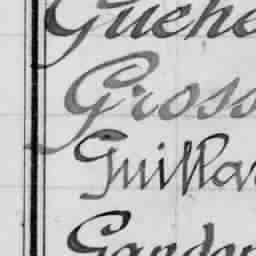 Guehe
Gross
Guillar
Gandon